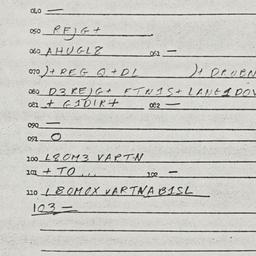 040 —
050 REJG+
060 AHUGL8 061 —
070 )+ REG Q+DL )+ DRUEN
080 D3REJG+ FTN1S+ LANE1DOV
081 + G1DIR+ 082 —
090 —
091 O
100 L8OM3 VARTN
101 + TO... 102 —
110 L8OMOX VARTNAB1SL
103 —